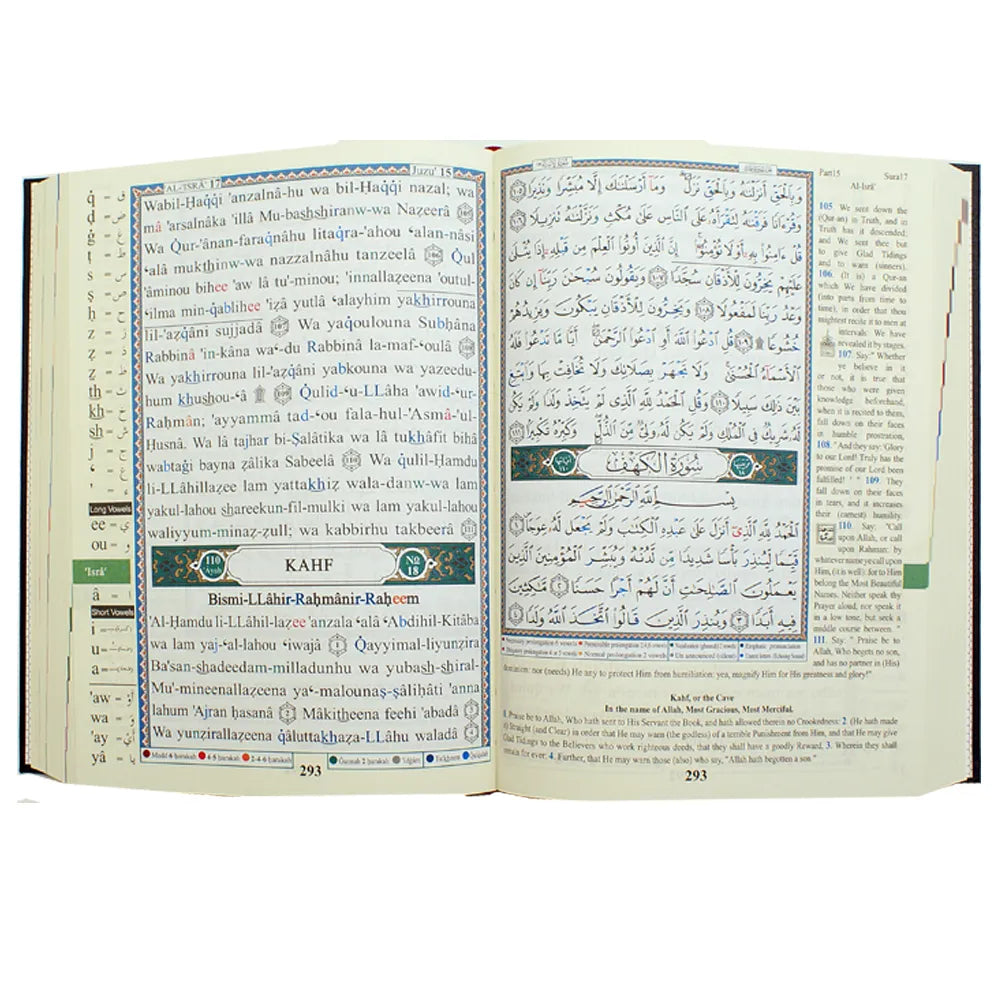 AL-'ISRÂ' 17
Juzu' 15
Wabil-Ḥaqqi 'anzalnâ-hu wa bil-Ḥaqqi nazal; wa
mâ 'arsalnâka 'illâ Mu-bashshiranw-wa Naẓeerâ 105
Wa Qur-'ânan-faraqnâhu litaqra-'ahou ʻalan-nâsi
ʻalâ mukthinw-wa nazzalnâhu tanzeelâ 106 Qul
'âminou bihee 'aw lâ tu'-minou; 'innallaẓeena 'outul-
ʻilma min-qablihee 'iẓâ yutlâ ʻalayhim yakhirrouna
lil-'aẓqâni sujjadâ 107 Wa yaqoulouna Subḥâna
Rabbinâ 'in-kâna waʻ-du Rabbinâ la-maf-ʻoulâ 108
Wa yakhirrouna lil-'aẓqâni yabkouna wa yazeedu-
hum khushou-ʻâ ۩ 109 Qulid-ʻu-LLâha 'awid-ʻur-
Raḥmân; 'ayyammâ tad-ʻou fala-hul-'Asmâ-'ul-
Ḥusnâ. Wa lâ tajhar bi-Ṣalâtika wa lâ tukhâfit bihâ
wabtaġi bayna ẓâlika Sabeelâ 110 Wa qulil-Ḥamdu
li-LLâhillaẓee lam yattakhiẓ wala-danw-wa lam
yakul-lahou shareekun-fil-mulki wa lam yakul-lahou
waliyyum-minaẓ-ẓull; wa kabbirhu takbeerâ 111
110 Ayah
KAHF
No 18
Bismi-LLâhir-Raḥmânir-Raḥeem
'Al-Ḥamdu li-LLâhil-laẓee 'anzala ʻalâ ʻAbdihil-Kitâba
wa lam yaj-ʻal-lahou ʻiwajâ 1 Qayyimal-liyunẓira
Ba'san-shadeedam-milladunhu wa yubash-shiral-
Mu'-mineenallaẓeena yaʻ-malounaṣ-ṣâliḥâti 'anna
lahum 'Ajran ḥasanâ 2 Mâkitheena feehi 'abadâ 3
Wa yunẓirallaẓeena qâluttakhaẓa-LLâhu waladâ 4
293
q = ق
ḍ = ض
ġ = غ
ṭ = ط
s = س
ṣ = ص
ḥ = ح
z = ز
ẓ = ذ
th = ث
kh = خ
sh = ش
j = ج
ʻ = ع
' = ء
Long Vowels
ee = ي
ou = و
'Isrâ'
â = ا
Short Vowels
i =
u =
a =
'aw =
wa = و
'ay =
yâ = يا
وَبِالْحَقِّ أَنزَلْنَاهُ وَبِالْحَقِّ نَزَلَ وَمَا أَرْسَلْنَاكَ إِلَّا مُبَشِّرًا وَنَذِيرًا ١٠٥
وَقُرْءَانًا فَرَقْنَاهُ لِتَقْرَأَهُ عَلَى النَّاسِ عَلَى مُكْثٍ وَنَزَّلْنَاهُ تَنزِيلًا ١٠٦
قُلْ ءَامِنُوا بِهِ أَوْ لَا تُؤْمِنُوا إِنَّ الَّذِينَ أُوتُوا الْعِلْمَ مِن قَبْلِهِ إِذَا يُتْلَى
عَلَيْهِمْ يَخِرُّونَ لِلْأَذْقَانِ سُجَّدًا ١٠٧ وَيَقُولُونَ سُبْحَانَ رَبِّنَا إِن كَانَ
وَعْدُ رَبِّنَا لَمَفْعُولًا ١٠٨ وَيَخِرُّونَ لِلْأَذْقَانِ يَبْكُونَ وَيَزِيدُهُمْ
خُشُوعًا ۩ ١٠٩ قُلِ ادْعُوا اللَّهَ أَوِ ادْعُوا الرَّحْمَٰنَ أَيًّا مَا تَدْعُوا فَلَهُ
الْأَسْمَاءُ الْحُسْنَى وَلَا تَجْهَرْ بِصَلَاتِكَ وَلَا تُخَافِتْ بِهَا وَابْتَغِ
بَيْنَ ذَٰلِكَ سَبِيلًا ١١٠ وَقُلِ الْحَمْدُ لِلَّهِ الَّذِي لَمْ يَتَّخِذْ وَلَدًا وَلَمْ يَكُن
لَّهُ شَرِيكٌ فِي الْمُلْكِ وَلَمْ يَكُن لَّهُ وَلِيٌّ مِّنَ الذُّلِّ وَكَبِّرْهُ تَكْبِيرًا ١١١
سُورَةُ الْكَهْفِ
بِسْمِ اللَّهِ الرَّحْمَٰنِ الرَّحِيمِ
الْحَمْدُ لِلَّهِ الَّذِي أَنزَلَ عَلَى عَبْدِهِ الْكِتَابَ وَلَمْ يَجْعَل لَّهُ عِوَجًا ١
قَيِّمًا لِّيُنذِرَ بَأْسًا شَدِيدًا مِّن لَّدُنْهُ وَيُبَشِّرَ الْمُؤْمِنِينَ الَّذِينَ
يَعْمَلُونَ الصَّالِحَاتِ أَنَّ لَهُمْ أَجْرًا حَسَنًا ٢ مَّاكِثِينَ
فِيهِ أَبَدًا ٣ وَيُنذِرَ الَّذِينَ قَالُوا اتَّخَذَ اللَّهُ وَلَدًا ٤
Part15 Sura17
Al-Isrâ'
105. We sent down the
(Qur-an) in Truth, and in
Truth has it descended;
and We sent thee but
to give Glad Tidings
and to warn (sinners).
106. (It is) a Qur-an
which We have divided
(into parts from time to
time), in order that thou
mightest recite it to men at
intervals: We have
revealed it by stages.
107. Say:" Whether
ye believe in it
or not, it is true that
those who were given
knowledge beforehand,
when it is recited to them,
fall down on their faces
in humble prostration,
108. "And they say:'Glory
to our Lord! Truly has the
promise of our Lord been
fulfilled!' " 109. They
fall down on their faces
in tears, and it increases
their (earnest) humility.
110. Say: "Call
upon Allah, or call
upon Rahman: by
whatever name ye call upon
Him, (it is well): for to Him
belong the Most Beautiful
Names. Neither speak thy
Prayer aloud, nor speak it
in a low tone, but seek a
middle course between. "
111. Say: " Praise be to
Allah, Who begets no son,
and has no partner in (His)
dominion: nor (needs) He any to protect Him from humiliation: yea, magnify Him for His greatness and glory!"
Kahf, or the Cave
In the name of Allah, Most Gracious, Most Merciful.
1. Praise be to Allah, Who hath sent to His Servant the Book, and hath allowed therein no Crookedness: 2. (He hath made
it) Straight (and Clear) in order that He may warn (the godless) of a terrible Punishment from Him, and that He may give
Glad Tidings to the Believers who work righteous deeds, that they shall have a goodly Reward, 3. Wherein they shall
remain for ever: 4. Further, that He may warn those (also) who say, "Allah hath begotten a son."
293